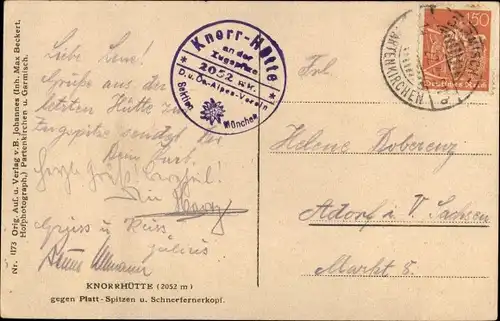 Nr. 1173 Orig. Auf. u. Verlag v. B. Johannes (Inh. Max Beckert,
Hofphotograph,) Partenkirchen u. Garmisch.
Liebe Leni!
Grüße aus der
letzten Hütte zur
Zugspitze sendet Dir
Dein Kurt.
Gruss u. Kuss
Julius
KNORRHÜTTE (2052 m)
gegen Platt-Spitzen u. Schneefernerkopf.
Knorr-Hütte
an der
Zugspitze
2052 m
D. u. Oe. Alpen-Verein
Sektion München
150
Deutsches Reich
GARMISCH-
PARTENKIRCHEN
Frl.
Helene Koberenz
Adorf i. V. Sachsen
Markt 8.